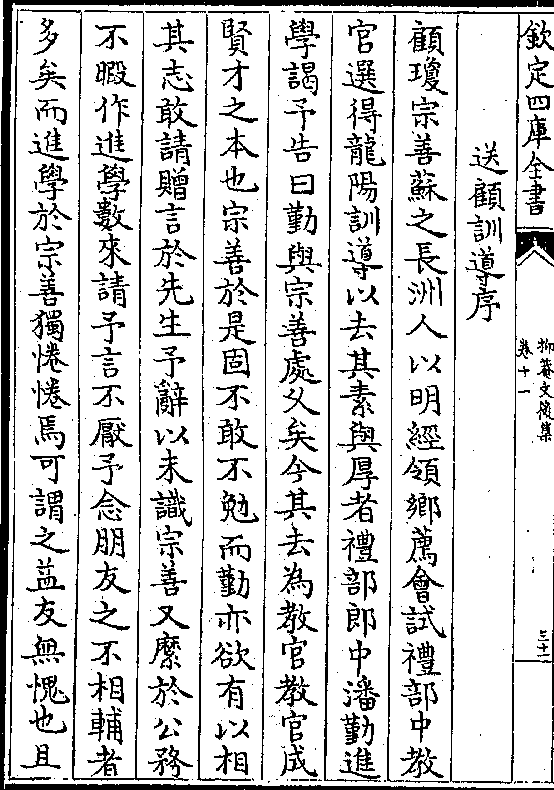 欽定四庫全書
抑菴文後集
卷十一
三十一
送顧訓導序
顧瓊宗善蘇之長洲人以明經領鄉薦會試禮部中教
官選得龍陽訓導以去其素與厚者禮部郎中潘勤進
學謁予告曰勤與宗善處久矣今其去為教官教官成
賢才之本也宗善於是固不敢不勉而勤亦欲有以相
其志敢請贈言於先生予辭以未識宗善又縻於公務
不暇作進學數來請予言不厭予念朋友之不相輔者
多矣而進學於宗善獨惓惓焉可謂之益友無愧也且